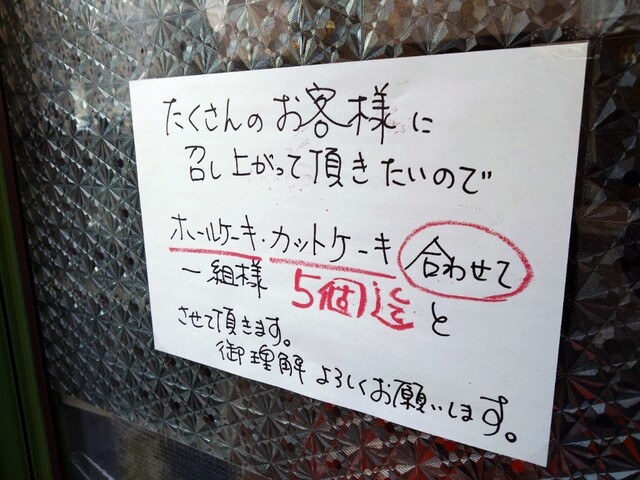 たくさんのお客様に
召し上がって頂きたいので
ホールケーキ・カットケーキ 合わせて
一組様 5個迄と
させて頂きます。
御理解よろしくお願いします。